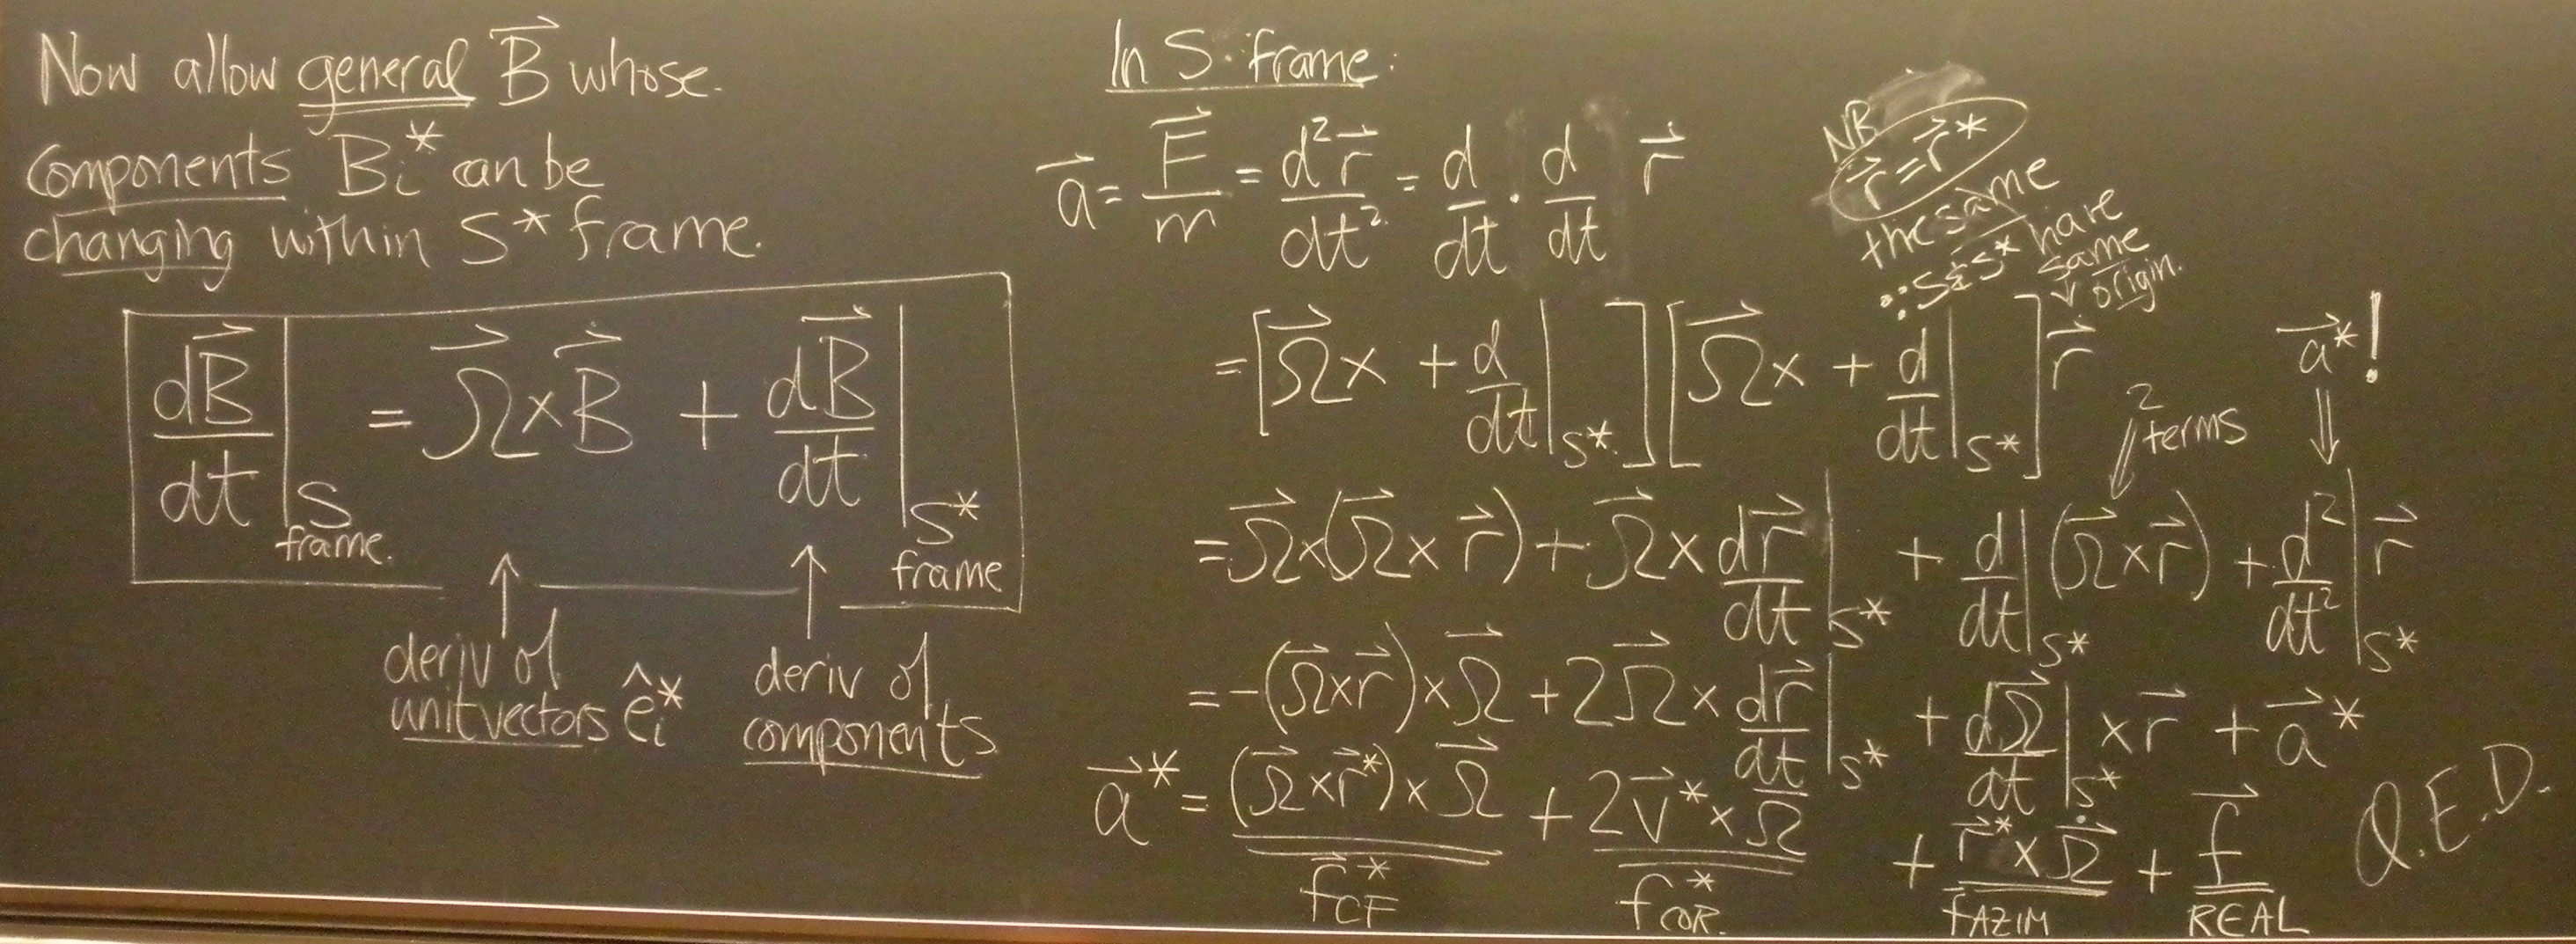 Now allow general B⃗ whose
components Bᵢ* can be
changing within S* frame.
dB⃗/dt |S frame. = Ω⃗ × B⃗ + dB⃗/dt |S* frame
↑ deriv of unit vectors êᵢ*
↑ deriv of components
In S frame:
a⃗ = F⃗/m = d²r⃗/dt² = d/dt · d/dt r⃗
NB r⃗ = r⃗*
the same
∵ S & S* have
same
origin.
= [Ω⃗ × + d/dt |S*] [Ω⃗ × + d/dt |S*] r⃗
2 terms
a⃗*!
= Ω⃗ × (Ω⃗ × r⃗) + Ω⃗ × dr⃗/dt |S* + d/dt |S* (Ω⃗ × r⃗) + d²/dt² |S* r⃗
= -(Ω⃗ × r⃗) × Ω⃗ + 2Ω⃗ × dr⃗/dt |S* + dΩ⃗/dt |S* × r⃗ + a⃗*
a⃗* = (Ω⃗ × r⃗*) × Ω⃗ + 2v⃗* × Ω⃗ + r⃗* × Ω⃗̇ + f⃗
f⃗*CF f*COR. fAZIM REAL
Q.E.D.